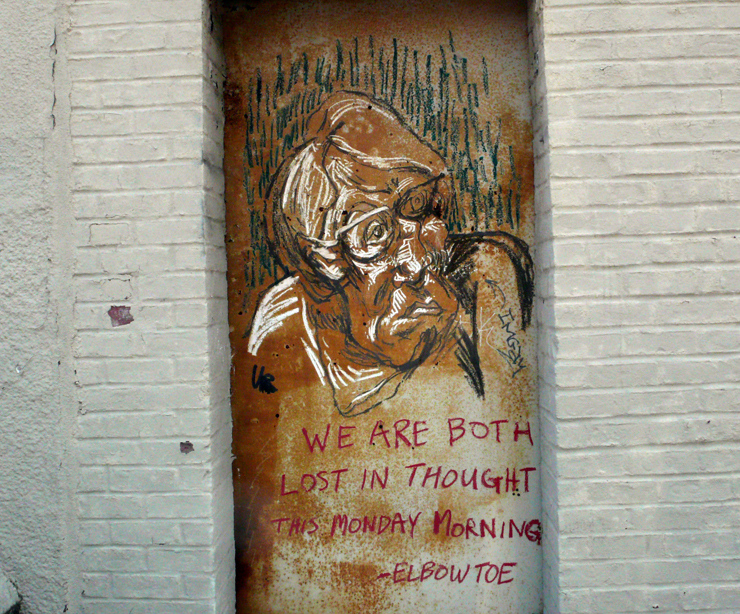 WE ARE BOTH
LOST IN THOUGHT
THIS MONDAY MORNING
-ELBOWTOE